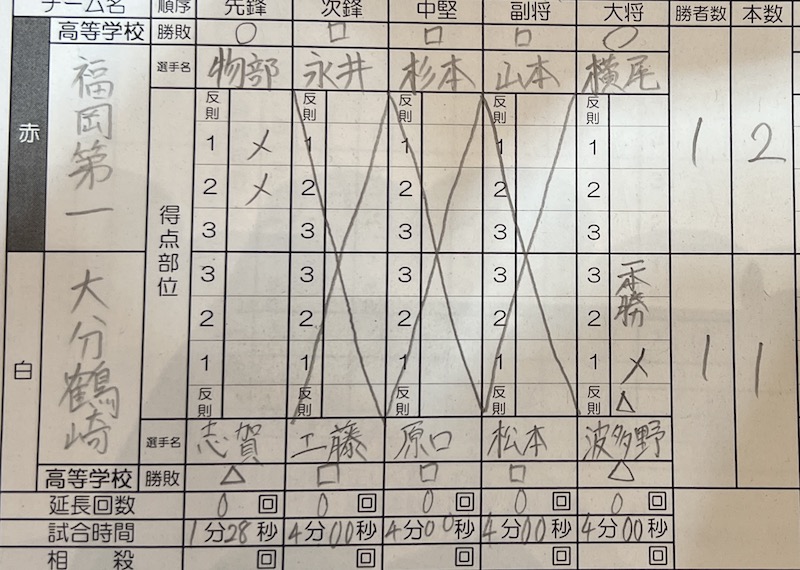 チーム名 順序 先鋒 次鋒 中堅 副将 大将 勝者数 本数
赤 高等学校 勝敗 ○ □ □ □ ○
福岡第一 選手名 物部 永井 杉本 山本 横尾
得点部位 反則 反則 反則 反則 反則
1 メ 1 1 1 1 1 2
2 メ 2 2 2 2
3 3 3 3 3
白 大分鶴崎 3 3 3 3 3 一本勝
2 2 2 2 2
1 1 1 1 1 メ 1 1
反則 反則 反則 反則 反則 △
選手名 志賀 工藤 原口 松本 波多野
高等学校 勝敗 △ □ □ □ △
延長回数 0回 0回 0回 0回 0回
試合時間 1分28秒 4分00秒 4分00秒 4分00秒 4分00秒
相殺 回 回 回 回 回